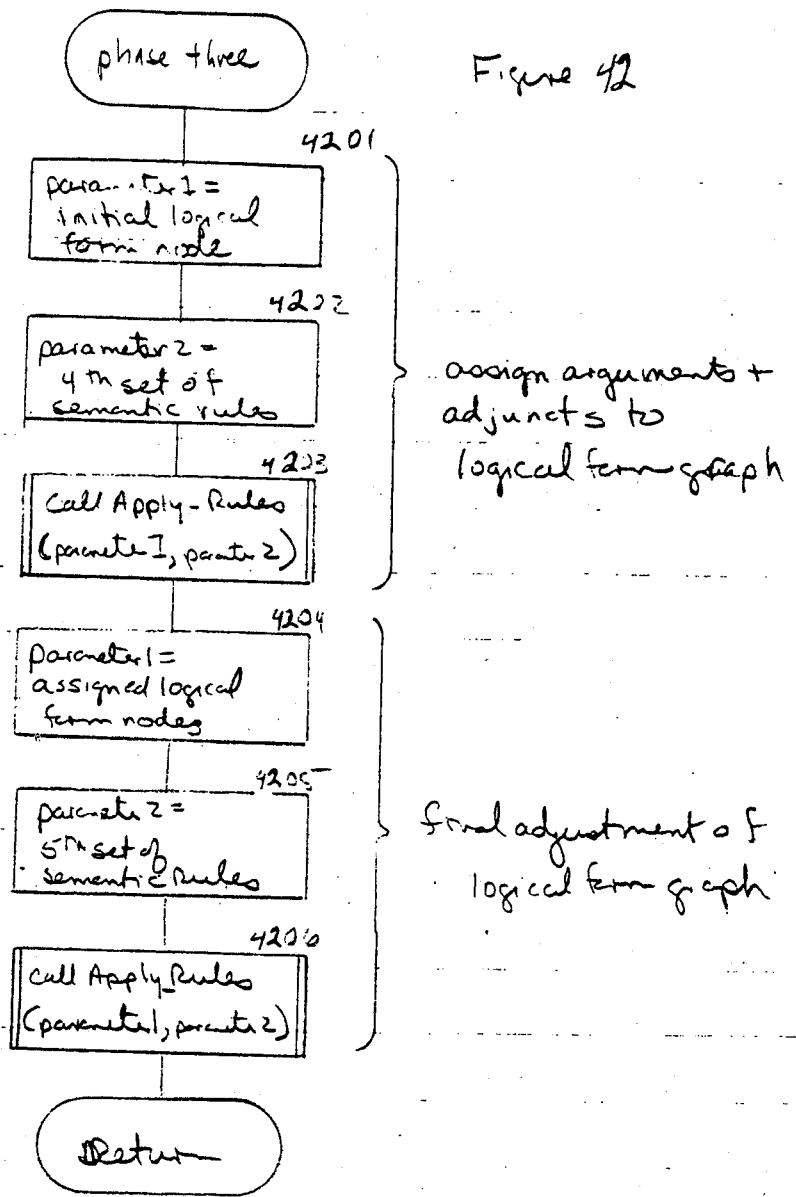 phase three
Figure 42
4201
parameter 1 =
initial logical
form node
4202
parameter 2 =
4th set of
semantic rules
4203
call Apply-Rules
(parameter 1, parameter 2)
assign arguments +
adjuncts to
logical form graph
4204
parameter 1 =
assigned logical
form nodes
4205
parameter 2 =
5th set of
semantic Rules
4206
call Apply_Rules
(parameter 1, parameter 2)
final adjustment of
logical form graph
Return